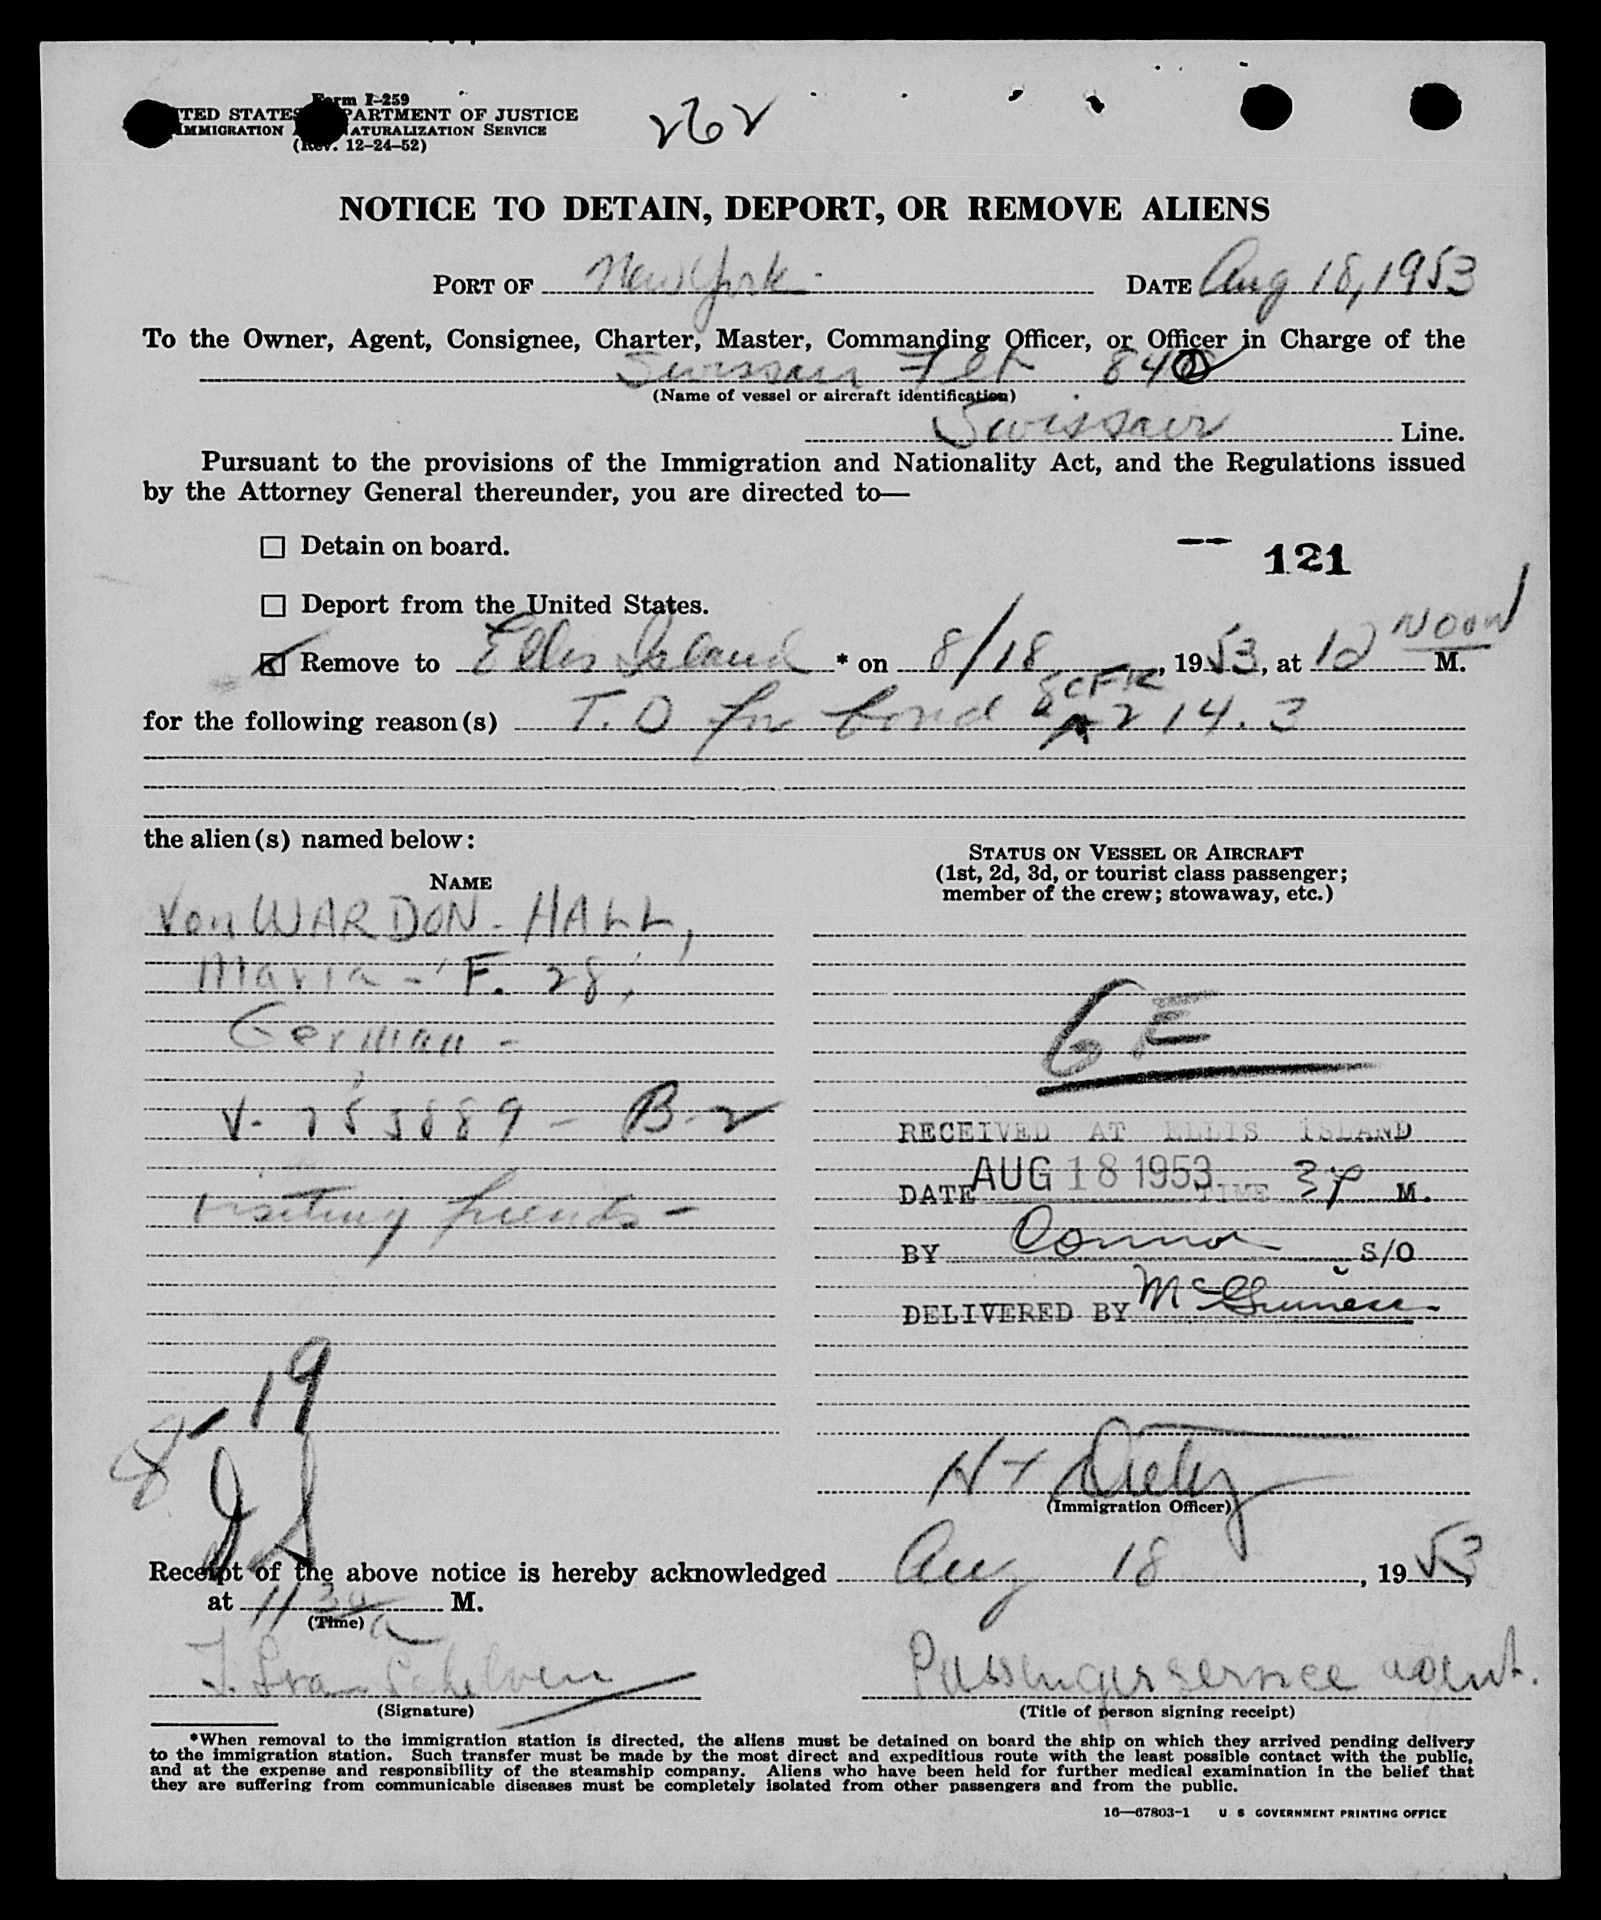 Form I-259
UNITED STATES DEPARTMENT OF JUSTICE
IMMIGRATION AND NATURALIZATION SERVICE
(Rev. 12-24-52)
262
NOTICE TO DETAIN, DEPORT, OR REMOVE ALIENS
PORT OF New York DATE Aug 18, 1953
To the Owner, Agent, Consignee, Charter, Master, Commanding Officer, or Officer in Charge of the
Swissair Flt 840
(Name of vessel or aircraft identification)
Swissair Line.
Pursuant to the provisions of the Immigration and Nationality Act, and the Regulations issued
by the Attorney General thereunder, you are directed to—
Detain on board.
121
Deport from the United States.
Remove to Ellis Island * on 8/18, 1953, at 12 NOON M.
for the following reason(s) T.D for bond 8 CFR 214.3
the alien(s) named below:
NAME
STATUS ON VESSEL OR AIRCRAFT
(1st, 2d, 3d, or tourist class passenger;
member of the crew; stowaway, etc.)
Von WARDON-HALL,
Maria - F. 28,
German -
6E
V- B-2
RECEIVED AT ELLIS ISLAND
DATE AUG 18 1953 TIME 3 P M.
visiting friends -
BY Connor S/O
DELIVERED BY McGuiness
8-19
(Immigration Officer)
Receipt of the above notice is hereby acknowledged Aug 18, 1953,
at 11 30 a M.
(Time)
Passenger service agent.
(Signature) (Title of person signing receipt)
*When removal to the immigration station is directed, the aliens must be detained on board the ship on which they arrived pending delivery
to the immigration station. Such transfer must be made by the most direct and expeditious route with the least possible contact with the public,
and at the expense and responsibility of the steamship company. Aliens who have been held for further medical examination in the belief that
they are suffering from communicable diseases must be completely isolated from other passengers and from the public.
16—67803-1 U S GOVERNMENT PRINTING OFFICE